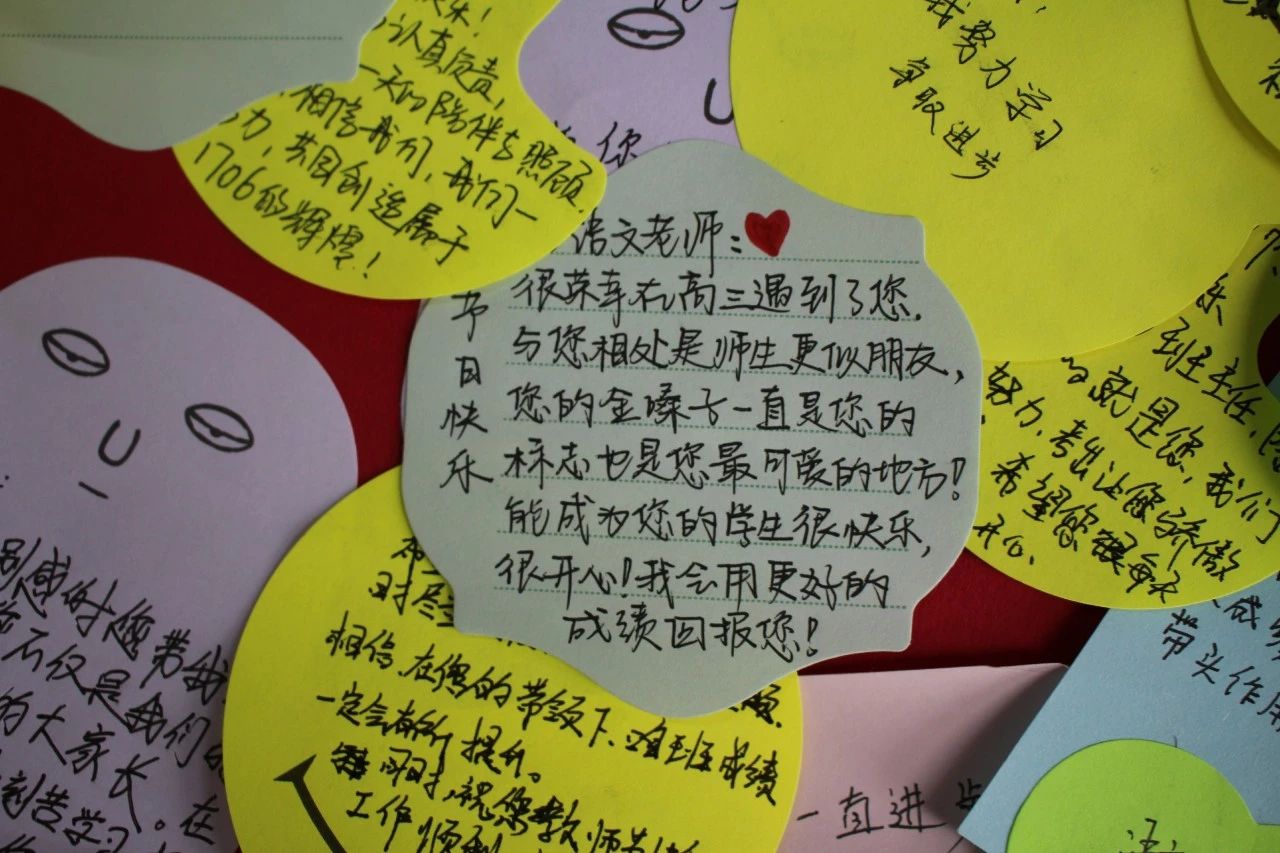 认真负责,
一天的陪伴与照顾.
相信我们,我们一
力,共同创造属于
1706的辉煌!
你
我努力学习
争取进步
语文老师:
节日快乐
很荣幸在高三遇到了您.
与您相处是师生更似朋友,
您的金嗓子一直是您的
标志也是您最可爱的地方!
能成为您的学生很快乐,
很开心!我会用更好的
成绩回报您!
乐
到班主任,
就是您,我们
努力,考出让您骄傲
希望您每天
开心.
带头作用
别感谢您带我
不仅是我们的
的大家长。在
刻苦学习
相信,在您的带领下,班成绩
一定会有所提升。
同时,祝您教师节快
工作顺利
一直进步
语文